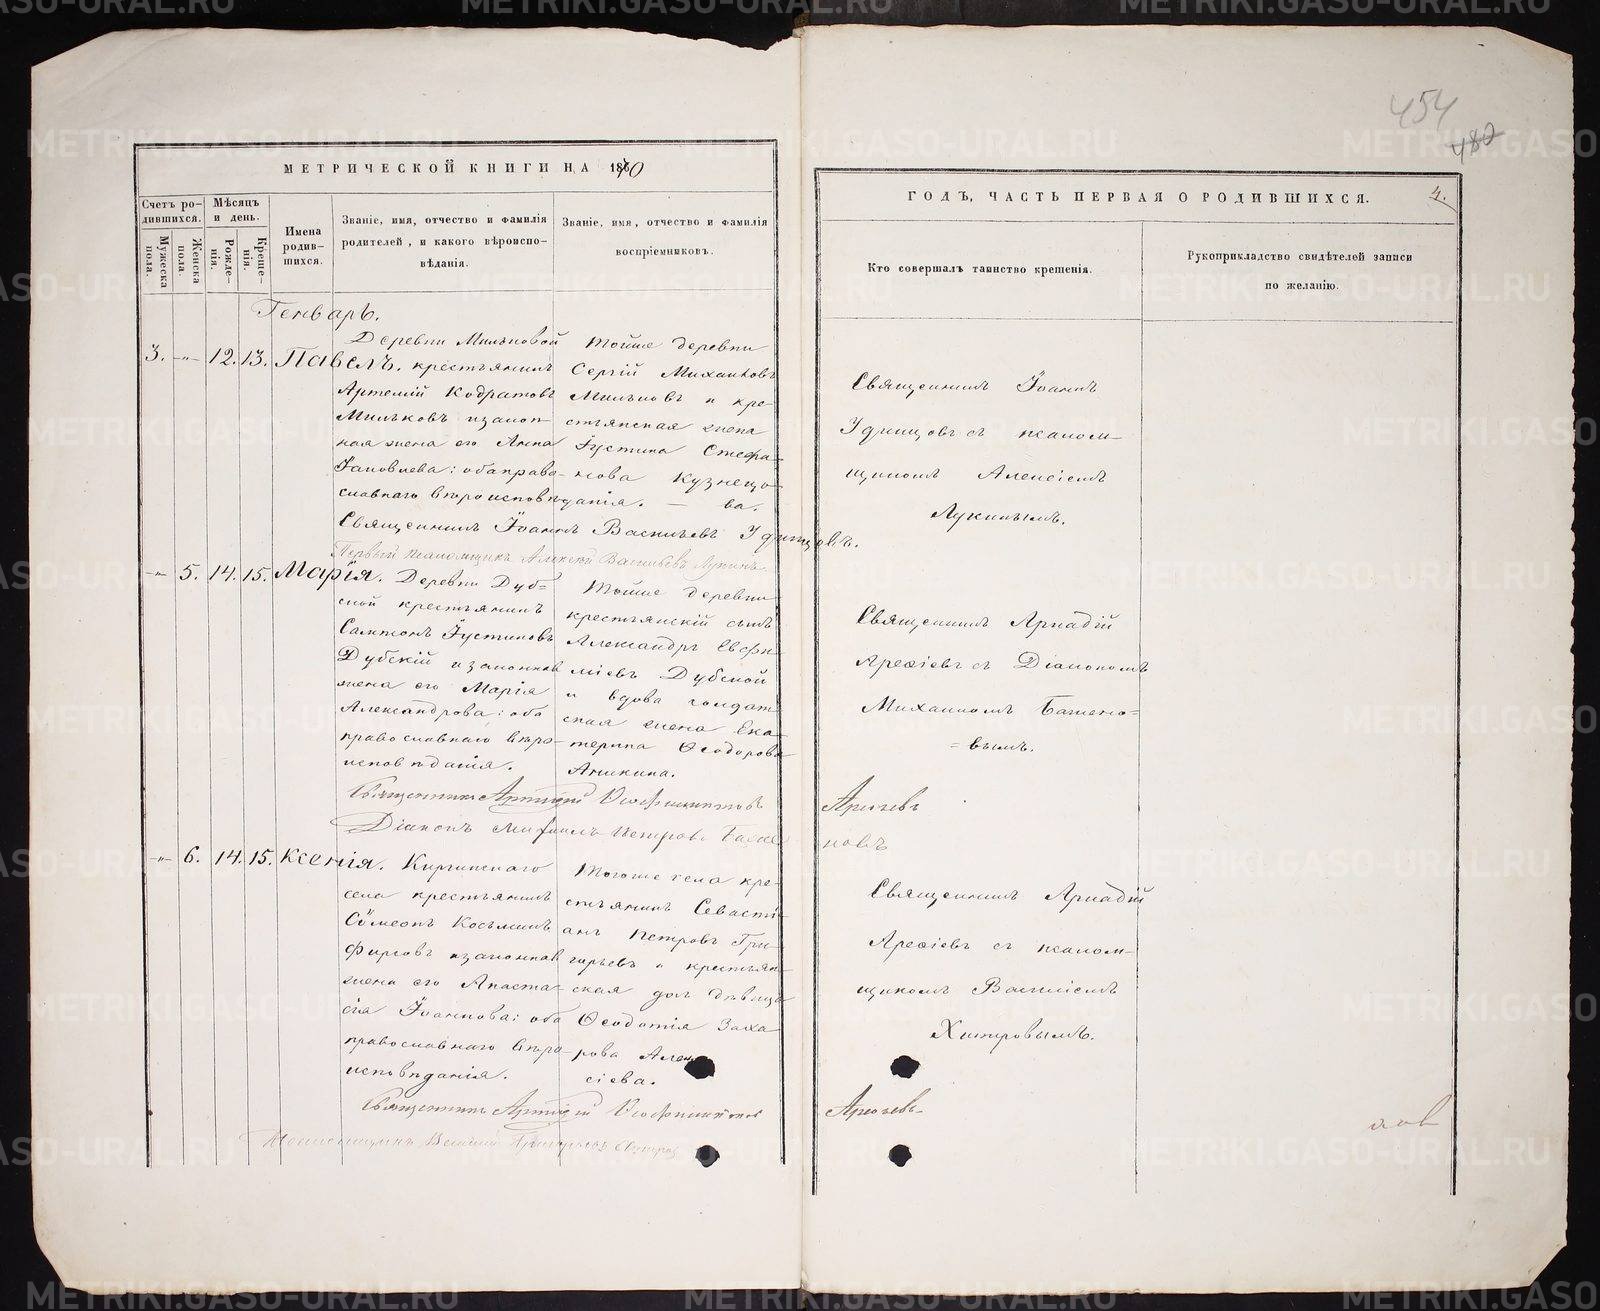 454
480
МЕТРИЧЕСКОЙ КНИГИ НА 1870
Счетъ родившихся.
Мужеска пола.
Женска пола.
Мѣсяцъ и день.
Рожденія.
Крещенія.
Имена родившихся.
Званіе, имя, отчество и фамилія родителей, и какого вѣроисповѣданія.
Званіе, имя, отчество и фамилія воспріемниковъ.
ГОДЪ, ЧАСТЬ ПЕРВАЯ О РОДИВШИХСЯ.
4.
Кто совершалъ таинство крещенія.
Рукоприкладство свидѣтелей записи по желанію.
Генварь.
3. -„- 12. 13. Павелъ.
Деревни Мильковой
крестьянинъ
Артемій Кодратовъ
Мильковъ и закон-
ная жена его Анна
Іаковлева: оба право-
славнаго вѣроисповѣданія.
Тойже деревни
Сергій Михайловъ
Мильковъ и кре-
стьянская жена
Іустина Стефа-
нова Кузнецо-
ва.
Священникъ Іоаннъ
Удинцовъ съ псалом-
щикомъ Алексіемъ
Лукинымъ.
Священникъ Іоаннъ Васильевъ Удинцовъ.
Первый псаломщикъ Алексѣй Васильевъ Лукинъ
-„- 5. 14. 15. Марія.
Деревни Дуб-
ской крестьянинъ
Сампсонъ Іустиновъ
Дубскій и законная
жена его Марія
Александрова: оба
православнаго вѣро-
исповѣданія.
Тойже деревни
крестьянскій сынъ
Александръ Евфи-
міевъ Дубской
и вдова солдат-
ская жена Ека-
терина Ѳеодорова
Аникина.
Священникъ Аркадій
Арефіевъ съ Діакономъ
Михаиломъ Бажено-
вымъ.
Священникъ Аркадій Арефьевъ
Діаконъ Михаилъ Петровъ Баженовъ
-„- 6. 14. 15. Ксенія.
Киргинскаго
села крестьянинъ
Сѵмеонъ Косьминъ
Фирсовъ и законная
жена его Анаста-
сія Іоаннова: оба
православнаго вѣро-
исповѣданія.
Тогоже села кре-
стьянинъ Севасті-
анъ Петровъ Гри-
горьевъ и крестьян-
ская дочь дѣвица
Ѳеодотія Заха-
рова Алек-
сіева.
Священникъ Аркадій
Арефіевъ съ псалом-
щикомъ Василіемъ
Хитровымъ.
Священникъ Аркадій Арефьевъ
Псаломщикъ Василій Григорьевъ Хитровъ